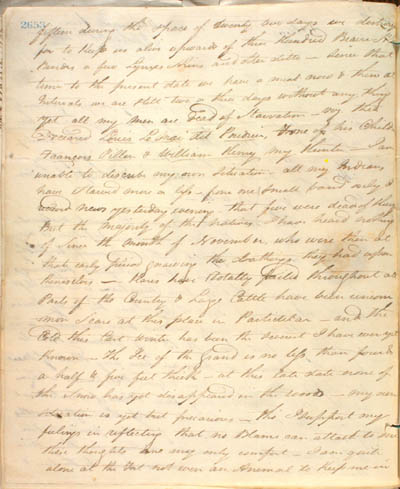 2653
fifteen during the space of twenty one days we destroy
for to keep us alive upwards of three Hundred Beaver
besides a few Lynxes and Otter — since that
time to the present date we have a meal now & then at
Intervals we are still two & three days without any thing
yet all my men are Dead of Starvation — my
Deceased Louis of his Child
François & William Henry my Hunter — I am
unable to describe my own Situation all my Indians
have Starved more — from one Small band only I
word news yesterday evening — that five were dead of
But the majority of the natives I have heard nothing
of since the month of November, who were then at
that early period the Cloathings they had upon
themselves — Hares have totally failed throughout all
Parts of the Country & Large Cattle have been uncom
mon Scarce at this place in Particular — and the
Cold this last winter has been the severest I have ever yet
known — the Ice of the is no less than four &
a half to five feet thick — at this late date none of
the Snow has yet disappeared in the woods — my own
situation is yet but precarious — tho I support my
feelings in reflecting that no Blame can attach to me
these thoughts are my only comfort — I am quite
alone at the Fort not even an Animal to keep me in